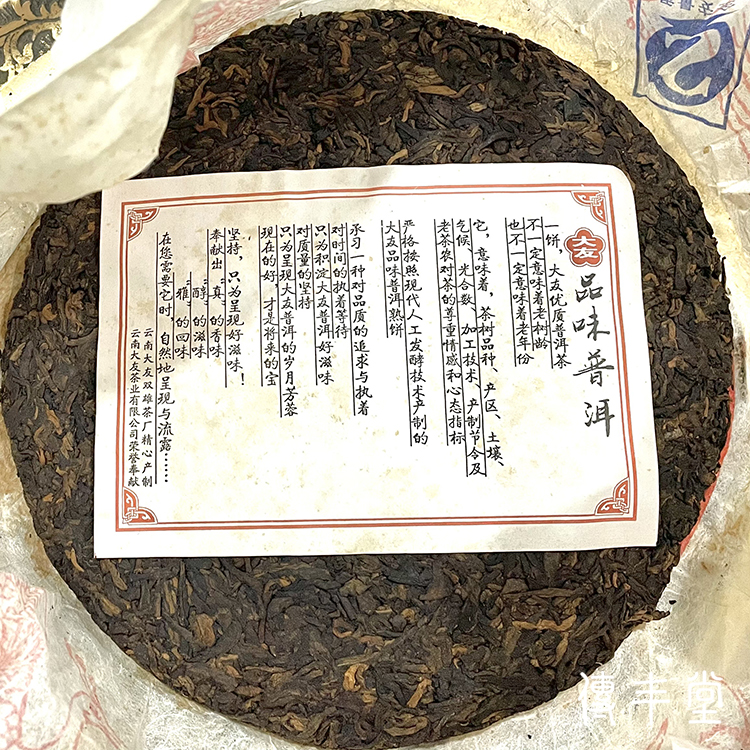 大友
品味普洱
一饼，大友优质普洱茶
不一定意味着老树龄
也不一定意味着老年份
它，意味着，茶树品种、产区、土壤、
气候、光合数、加工技术、产制节令及
老茶农对茶的尊重情感和心态指标
严格按照现代人工发酵技术产制的
大友品味普洱熟饼
承习一种对品质的追求与执着
对时间的执着等待
只为积淀大友普洱好滋味
对质量的坚持
只为呈现大友普洱的岁月芳蓉
现在的好，才是将来的宝
坚持，只为呈现好滋味！
奉献出“真”的香味
“醇”的滋味
“雅”的回味
在您需要它时，自然地呈现与流露……
云南大友双雄茶厂精心产制
云南大友茶业有限公司荣誉奉献
傳丰堂